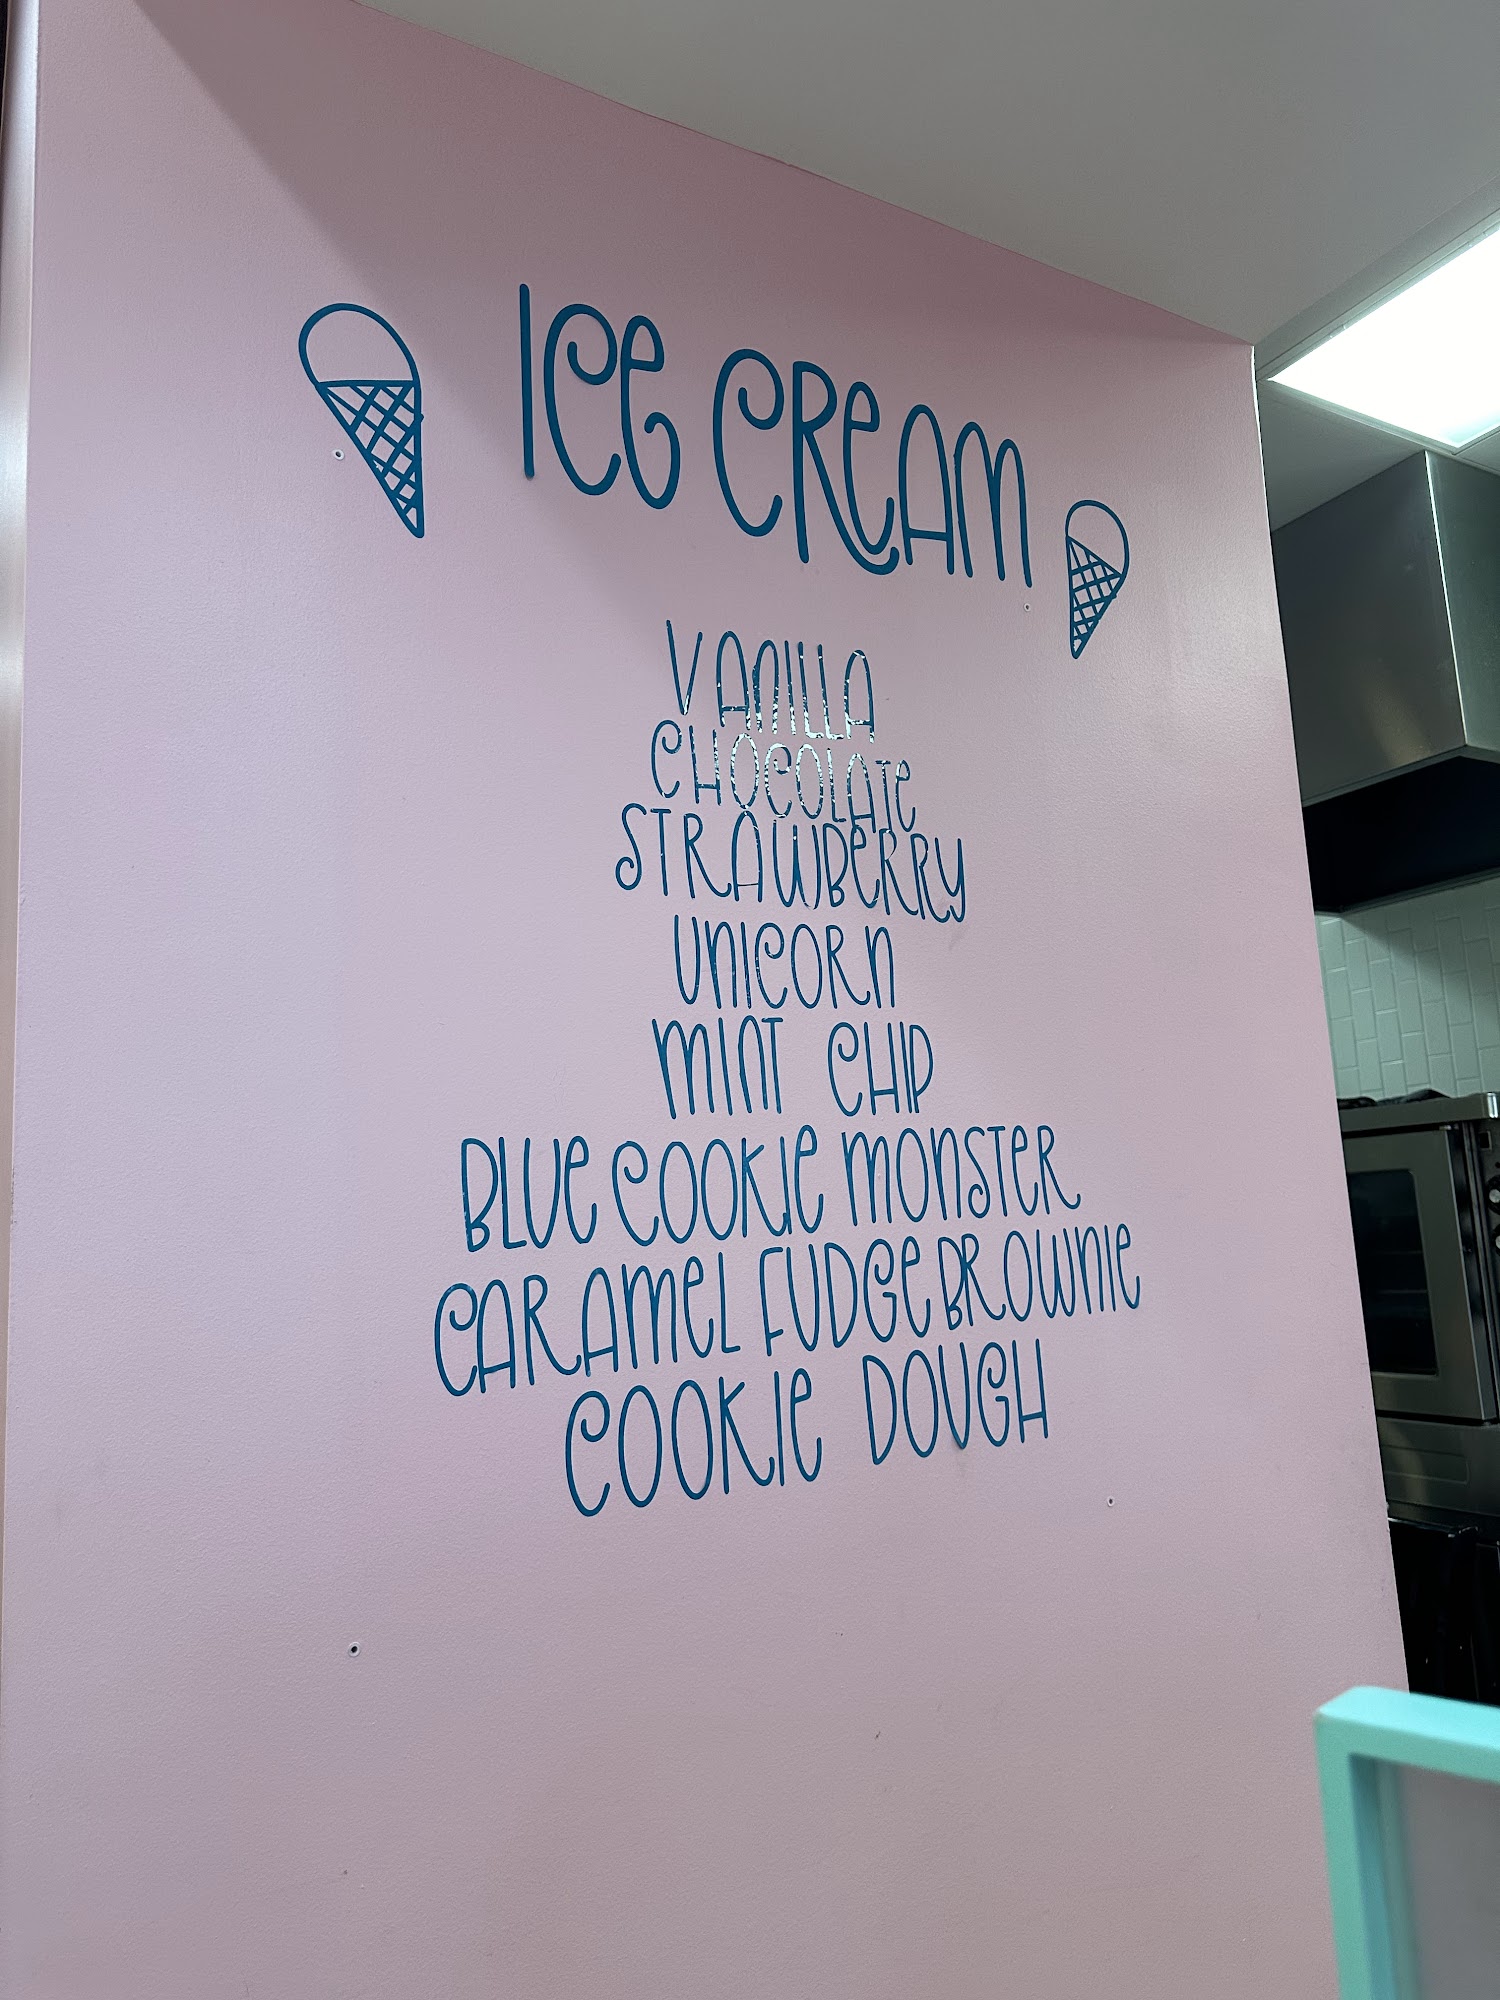 ICE CREAM
VANILLA
CHOCOLATE
STRAWBERRY
UNICORN
MINT CHIP
BLUE COOKIE MONSTER
CARAMEL FUDGE BROWNIE
COOKIE DOUGH